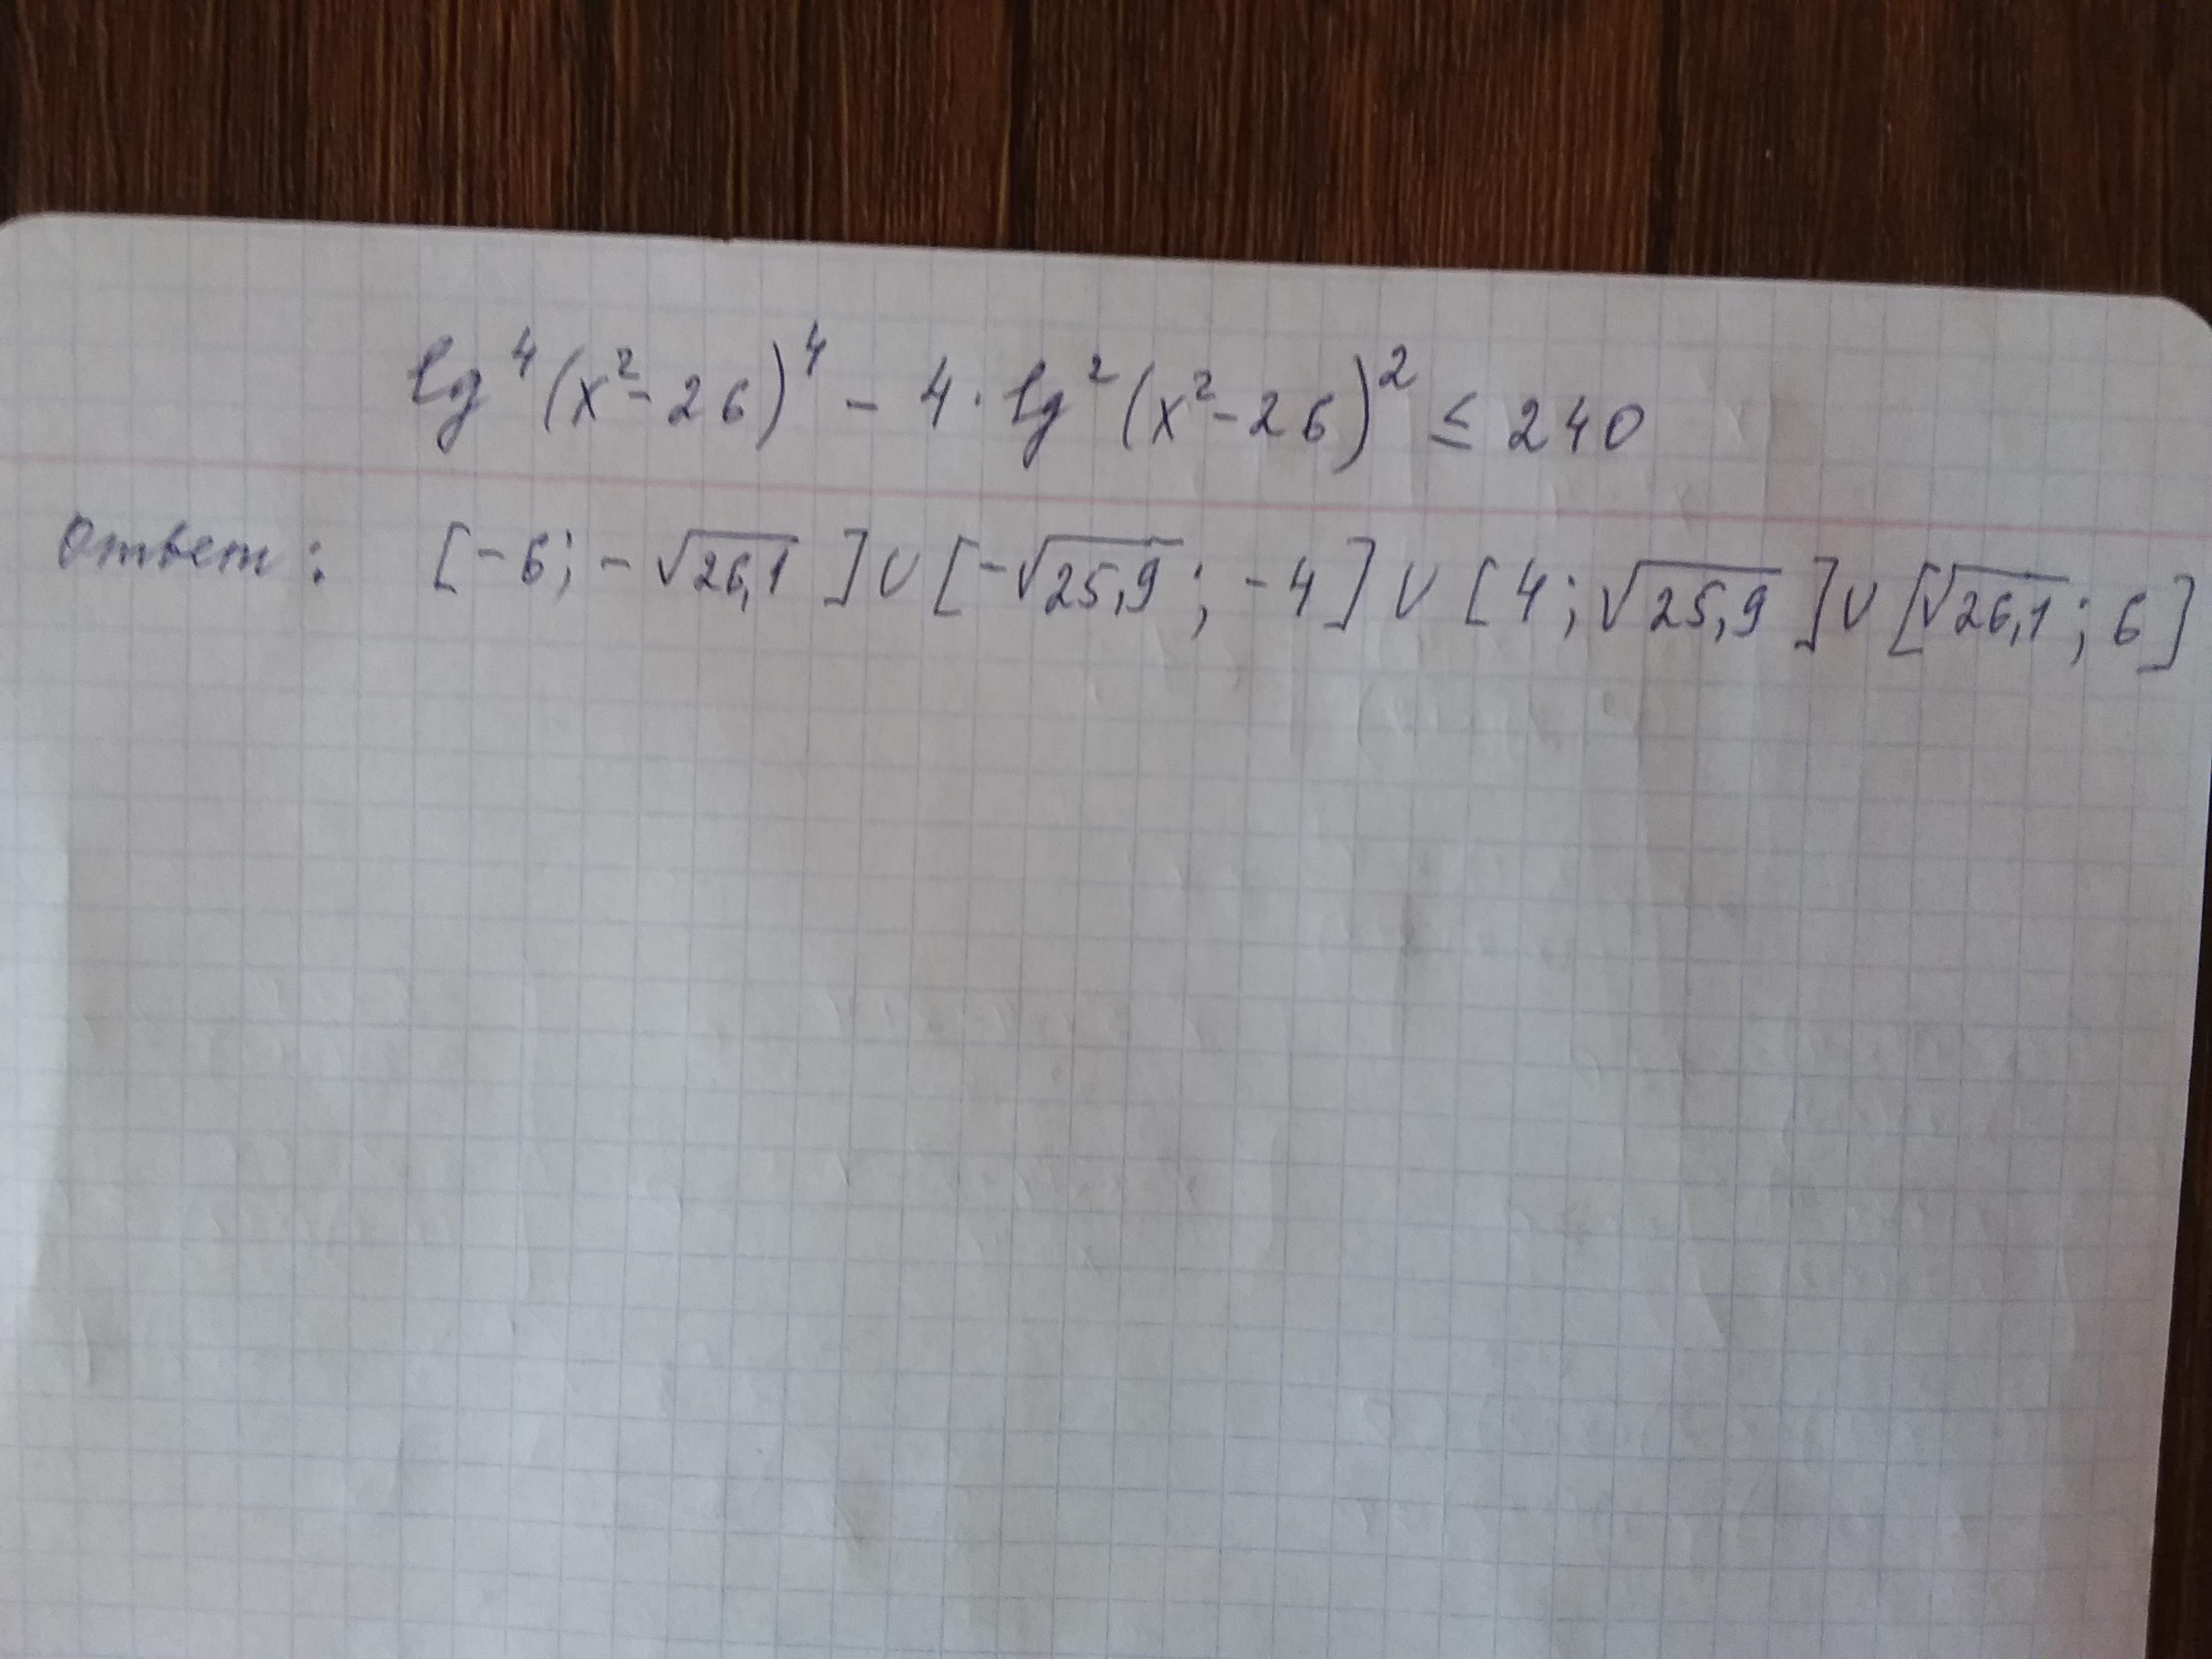 lg⁴(x²-26)⁴ - 4·lg²(x²-26)² ≤ 240
Ответ: [-6; -√26,1] ∪ [-√25,9; -4] ∪ [4; √25,9] ∪ [√26,1; 6]